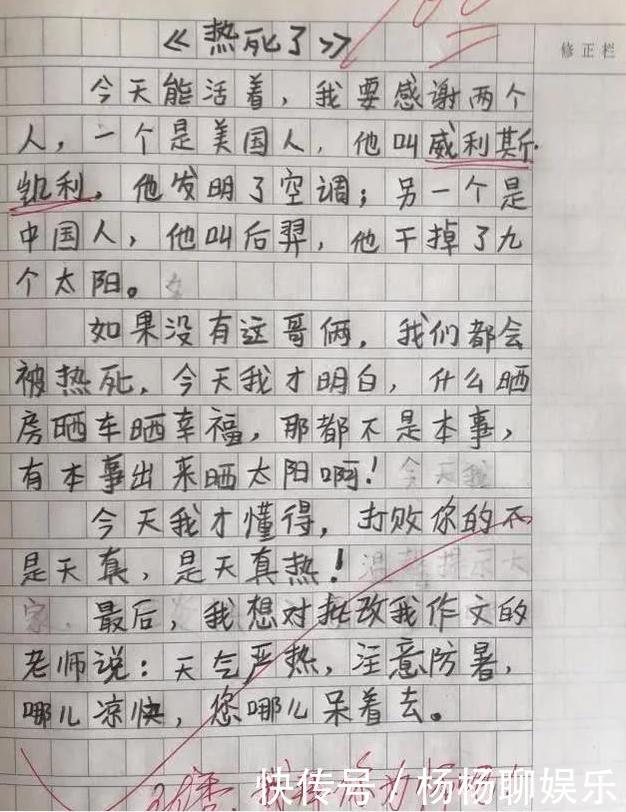 《热死了》
修正栏
今天能活着，我要感谢两个
人，一个是美国人，他叫威利斯·
凯利，他发明了空调；另一个是
中国人，他叫后羿，他干掉了九
个太阳。
如果没有这哥俩，我们都会
被热死，今天我才明白，什么晒
房晒车晒幸福，那都不是本事，
有本事出来晒太阳啊！今天我
今天我才懂得，打败你的不
是天真，是天真热！温馨提示大
家。最后，我想对批改我作文的
老师说：天气严热，注意防暑，
哪儿凉快，您哪儿呆着去。
快传号/杨杨聊娱乐